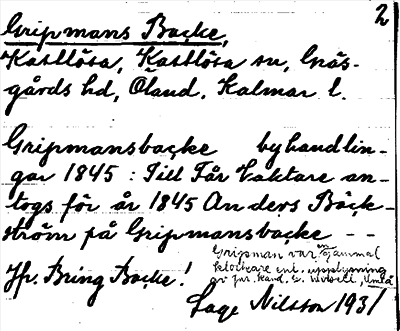 2
Gripmans Backe,
Kastlösa, Kastlösa sn, Gräs-
gårds hd, Öland. Kalmar l.
Gripmansbacke byhandlin-
gar 1845 : Till Får Vaktare an-
togs för år 1845 Anders Bäck-
ström på Gripmansbacke --
Gripman var en gammal
klockare enl. upplysning
av jur. kand. G.
Jfr. Bring Backe!
Sage Nilsson 1931